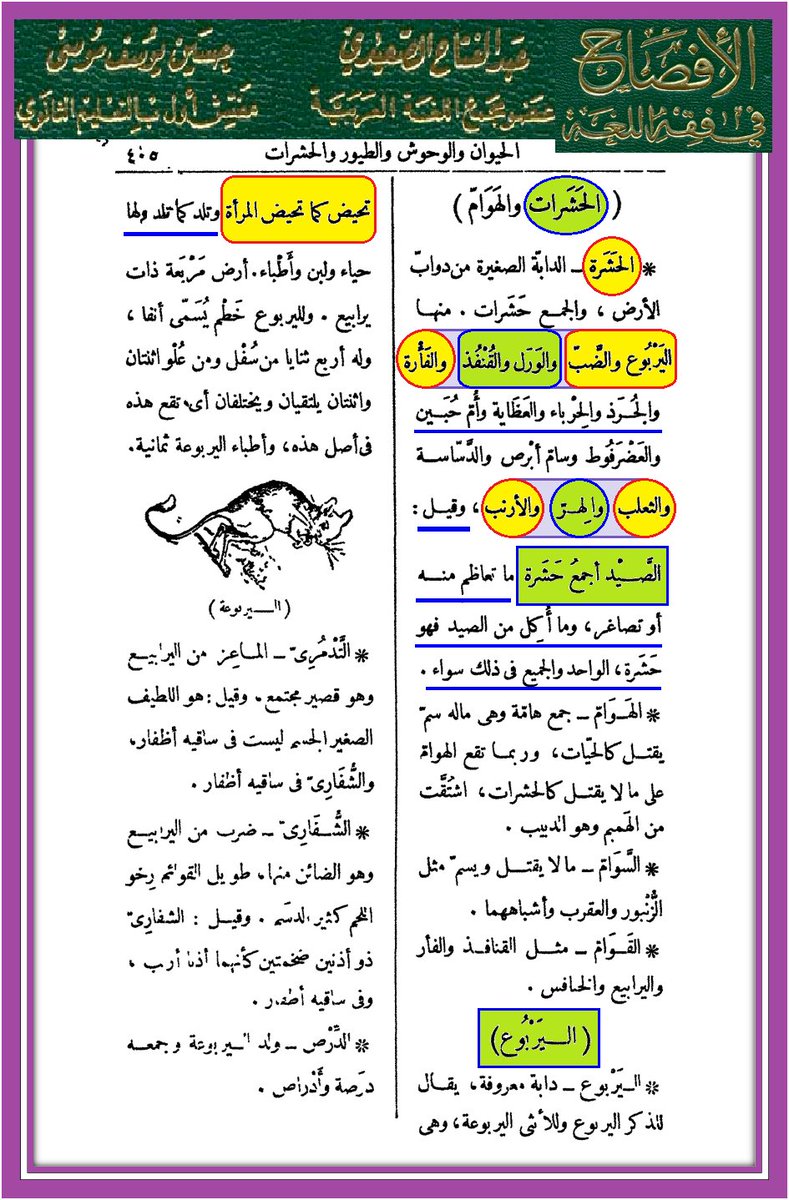 الأفصاح
في فقه اللغة
عبد الفتاح الصعيدي
عضو مجمع اللغة العربية
حسين يوسف موسى
مفتش أول بالتعليم الثانوي
الحيوان والوحوش والطيور والحشرات
٤٠٥
( الحَشَرات والهَوَامّ )
* الحَشَرة ــ الدابّة الصغيرة من دوابّ
الأرض ، والجمع حَشَرات . منها
اليَرْبُوع والضَّبّ والوَرَل والقُنْفُذ والفَأْرة
والجُرَذ والحِرْباء والعَظَاية وأُمّ حُبَين
والعَضْرَفُوط وسامّ أبْرص والدَّسّاسة
والثعلب والهِرّ والأرنب ، وقيل :
الصَّيْد أجمعُ حَشَرة ما تعاظم منه
أو تصاغر ، وما أُكِل من الصيد فهو
حَشَرة ، الواحد والجميع فى ذلك سواء .
* الهَوَامّ ــ جمع هامّة وهى ماله سمّ
يقتل كالحيّات ، وربما تقع الهوامّ
على ما لا يقتل كالحشرات ، اشتُقّت
من الهَميم وهو الدبيب .
* السَّوَامّ ــ ما لا يقتل ويسمّ مثل
الزُّنْبور والعقرب وأشباههما .
* القَوَامّ ــ مثل القنافذ والفأر
واليرابيع والخنافس .
( اليَرْبُوع )
* اليَرْبوع ــ دابة معروفة ، يقال
للذكر اليربوع وللأنثى اليربوعة ، وهى
تحيض كما تحيض المرأة وتلد كما تلد ولها
حياء ولبن وأَطْباء . أرض مَرْبَعة ذات
يرابيع . ولليربوع خَطْم يُسَمّى أنفا ،
وله أربع ثنايا من سُفْل ومن عُلْو اثنتان
واثنتان يلتقيان ويختلفان أى تقع هذه
فى أصل هذه ، وأطباء اليربوعة ثمانية .
( اليربوعة )
* التَّدْمُرِىّ ــ الماعز من اليرابيع
وهو قصير مجتمع . وقيل : هو اللطيف
الصغير الجسم ليست فى ساقيه أظفار ،
والشُّفَارِىّ فى ساقيه أظفار .
* الشُّفَارِىّ ــ ضرب من اليرابيع
وهو الضائن منها ، طويل القوائم رِخو
اللحم كثير الدسَم . وقيل : الشفارىّ
ذو أذنين ضخمتين كأنهما أذنا أرنب ،
وفى ساقيه أظفار .
* الدِّرْص ــ ولد اليربوعة وجمعه
دِرَصة وأَدْراص .